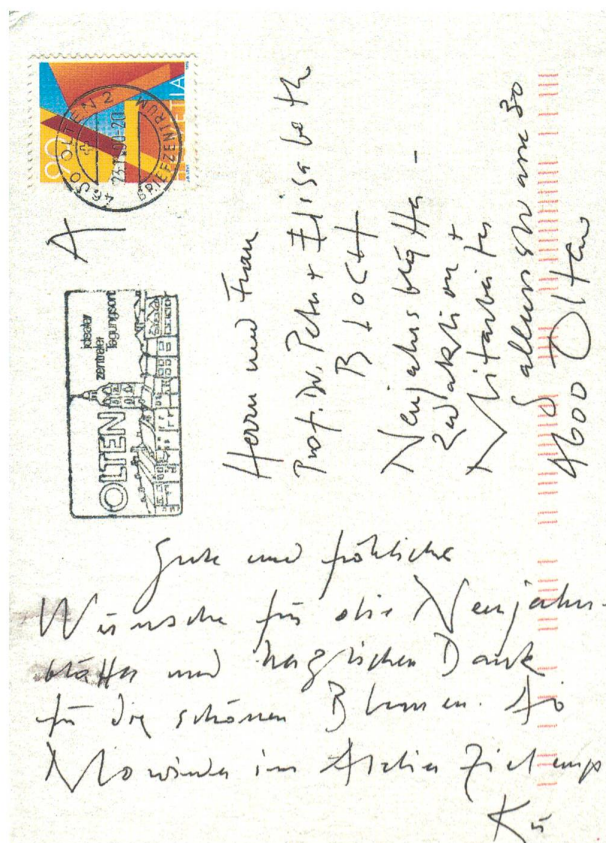 90
HELVETIA
4600 OLTEN 2
BRIEFZENTRUM
A
OLTEN
idealer
zentraler
Tagungsort
Herrn und Frau
Prof. Dr. Peter + Elisabeth
BLOCH
Neujahrsblätter-
Redaktion +
Mitarbeiter
4600 Olten
Gute und fröhliche
Wünsche für die Neujahrs-
blätter und herzlichen Dank
für die schönen Blumen. Ab
Mo wieder im Atelier